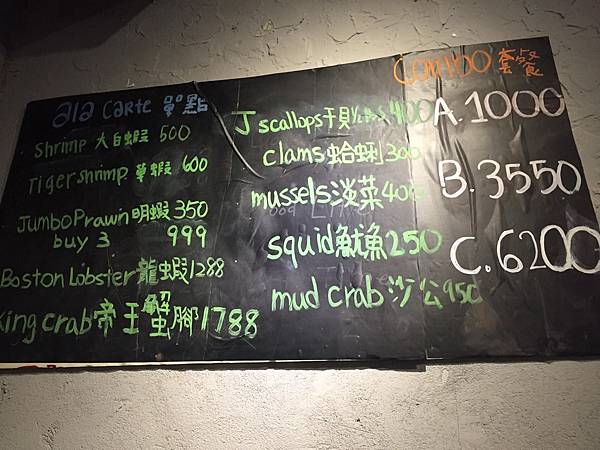 ala carte 單點
shrimp 大白蝦 500
Tiger shrimp 草蝦 600
Jumbo Prawn 明蝦 350
buy 3 999
Boston Lobster 龍蝦 1288
king crab 帝王蟹腳 1788
J scallops 干貝 400
clams 蛤蜊 300
mussels 淡菜 400
squid 魷魚 250
mud crab 沙公 950
combo 套餐
A. 1000
B. 3550
C. 6200